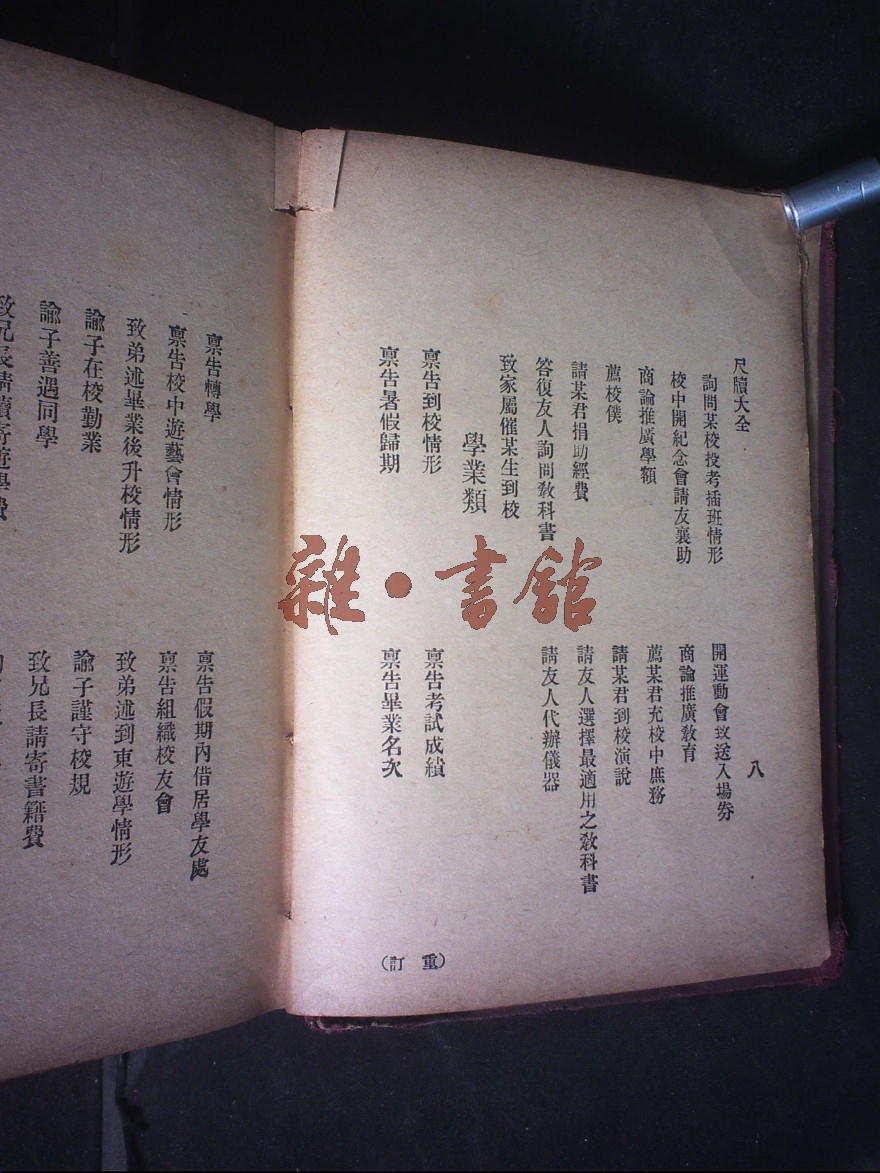 尺牘大全
八
詢問某校投考插班情形
開運動會致送入場券
校中開紀念會請友襄助
商論推廣教育
商論推廣學額
薦某君充校中庶務
薦校僕
請某君到校演說
請某君捐助經費
請友人選擇最適用之教科書
答復友人詢問教科書
請友人代辦儀器
致家屬催某生到校
學業類
稟告到校情形
稟告考試成績
稟告暑假歸期
稟告畢業名次
（重訂）
雜·書館
稟告轉學
稟告假期內借居學友處
稟告校中遊藝會情形
稟告組織校友會
致弟述畢業後升校情形
致弟述到東遊學情形
諭子在校勤業
諭子謹守校規
諭子善遇同學
致兄長請寄書籍費
致兄長請續寄遊學費